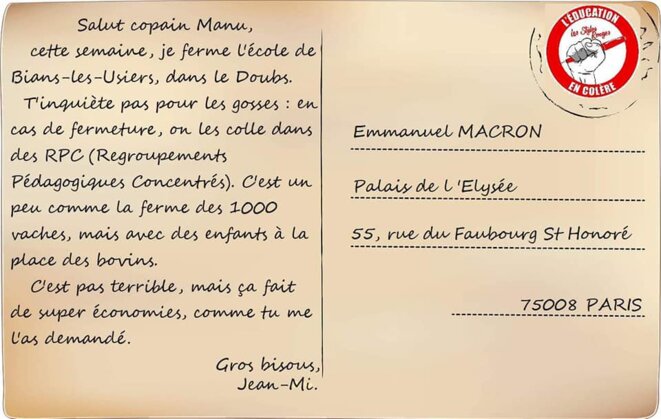 Salut copain Manu,
cette semaine, je ferme l'école de
Bians-les-Usiers, dans le Doubs.
T'inquiète pas pour les gosses : en
cas de fermeture, on les colle dans
des RPC (Regroupements
Pédagogiques Concentrés). C'est un
peu comme la ferme des 1000
vaches, mais avec des enfants à la
place des bovins.
C'est pas terrible, mais ça fait
de super économies, comme tu me
l'as demandé.
Gros bisous,
Jean-Mi.
L'ÉDUCATION
Les Stylos Rouges
EN COLÈRE
Emmanuel MACRON
Palais de l 'Elysée
55, rue du Faubourg St Honoré
75008 PARIS